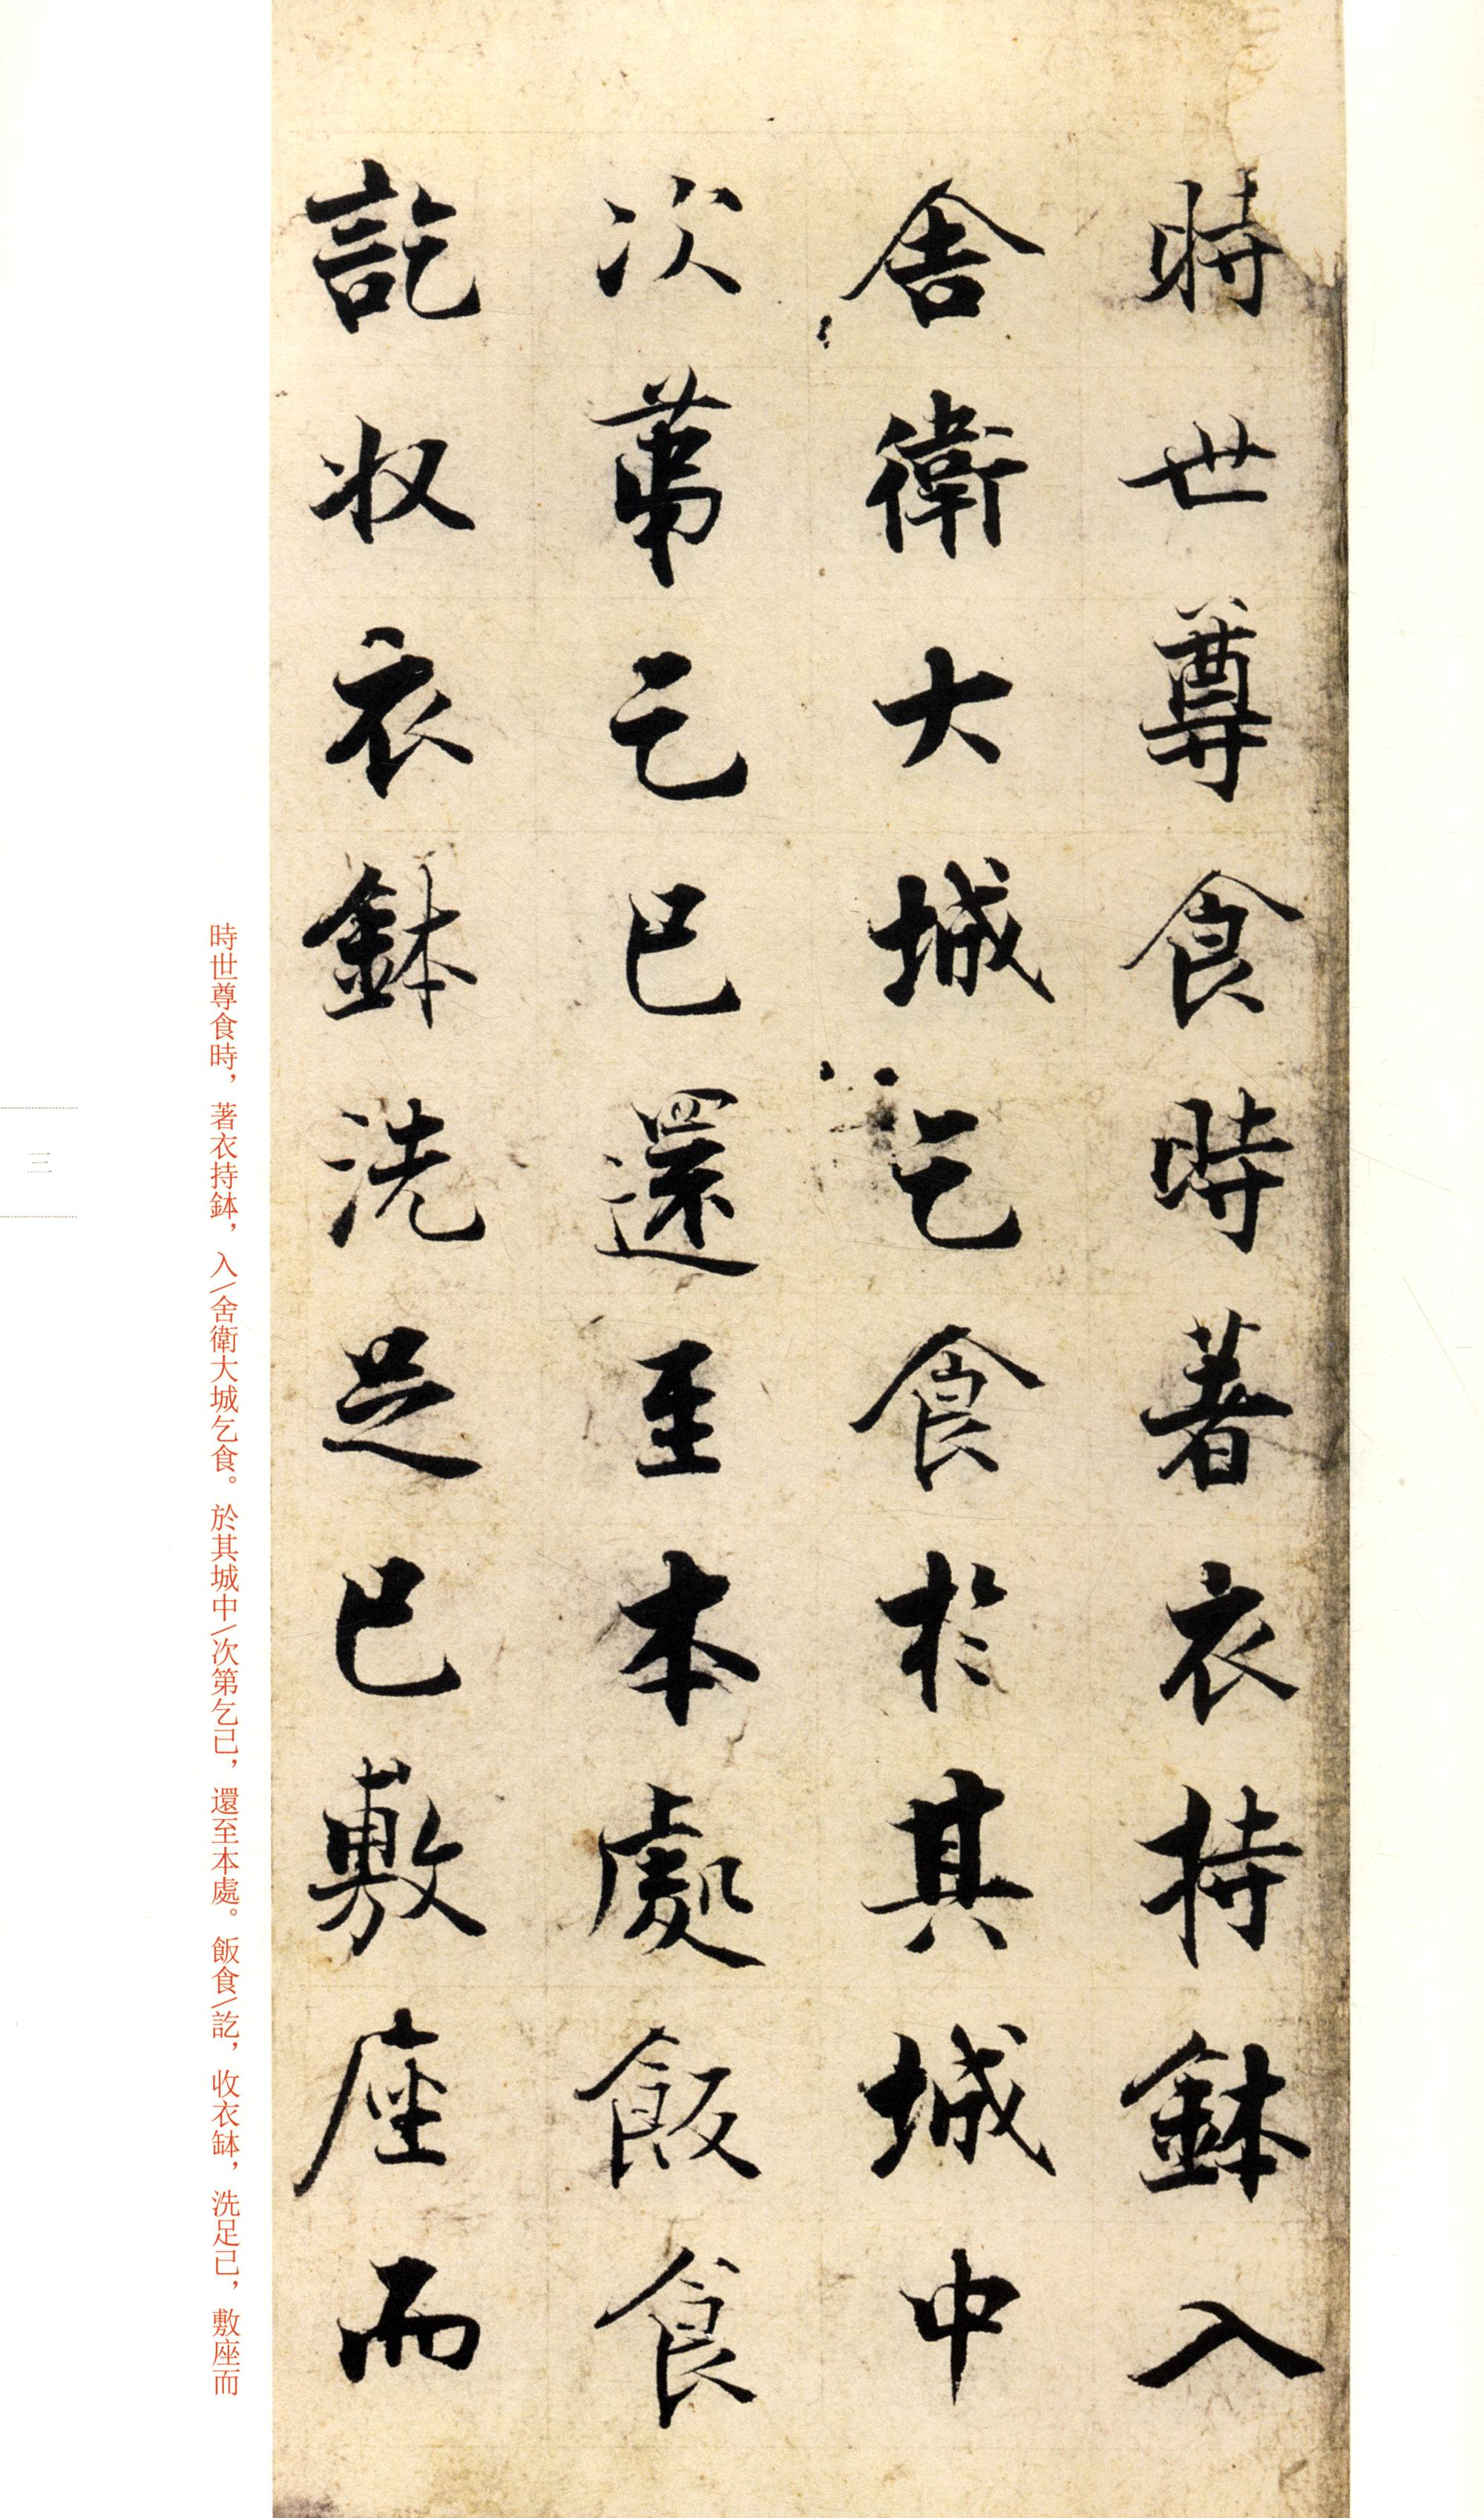 時世尊食時著衣持鉢入
舍衛大城乞食於其城中
次第乞已還至本處飯食
訖收衣鉢洗足已敷座而
時世尊食時，著衣持鉢，入/舍衛大城乞食。於其城中/次第乞已，還至本處。飯食/訖，收衣缽，洗足已，敷座而
三